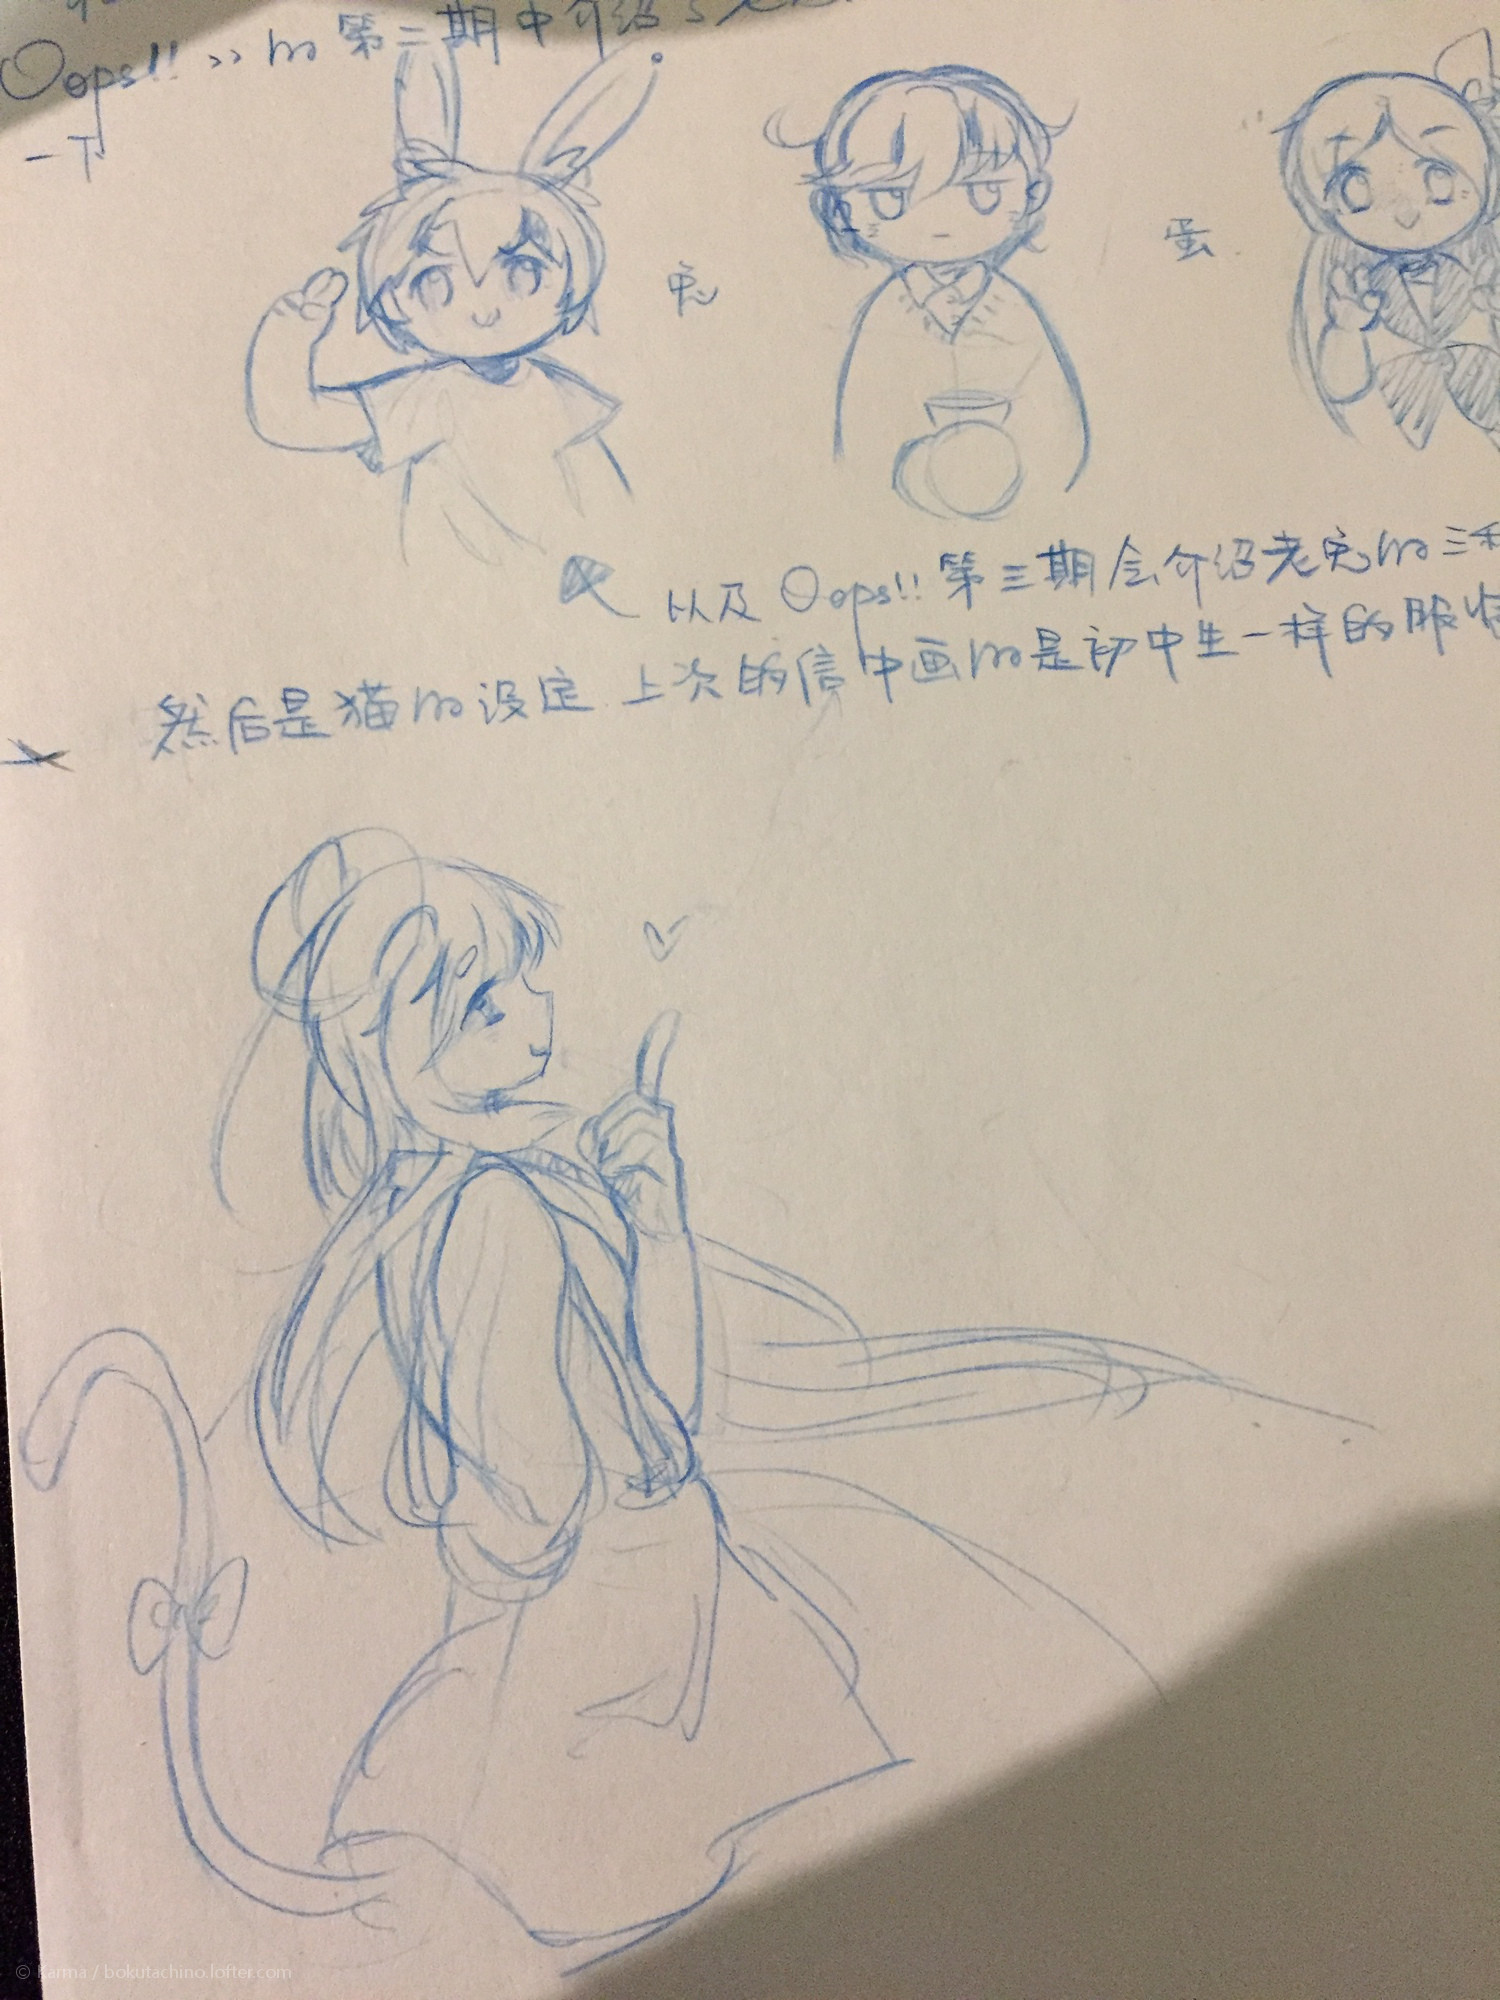 Oops!! >> の 第二期中介绍了
一下
兔
蛋
以及 Oops!! 第三期会介绍老兔の三种
然后是猫の设定.上次的信中画の是初中生一样的服
© Karma / bokutachino.lofter.com